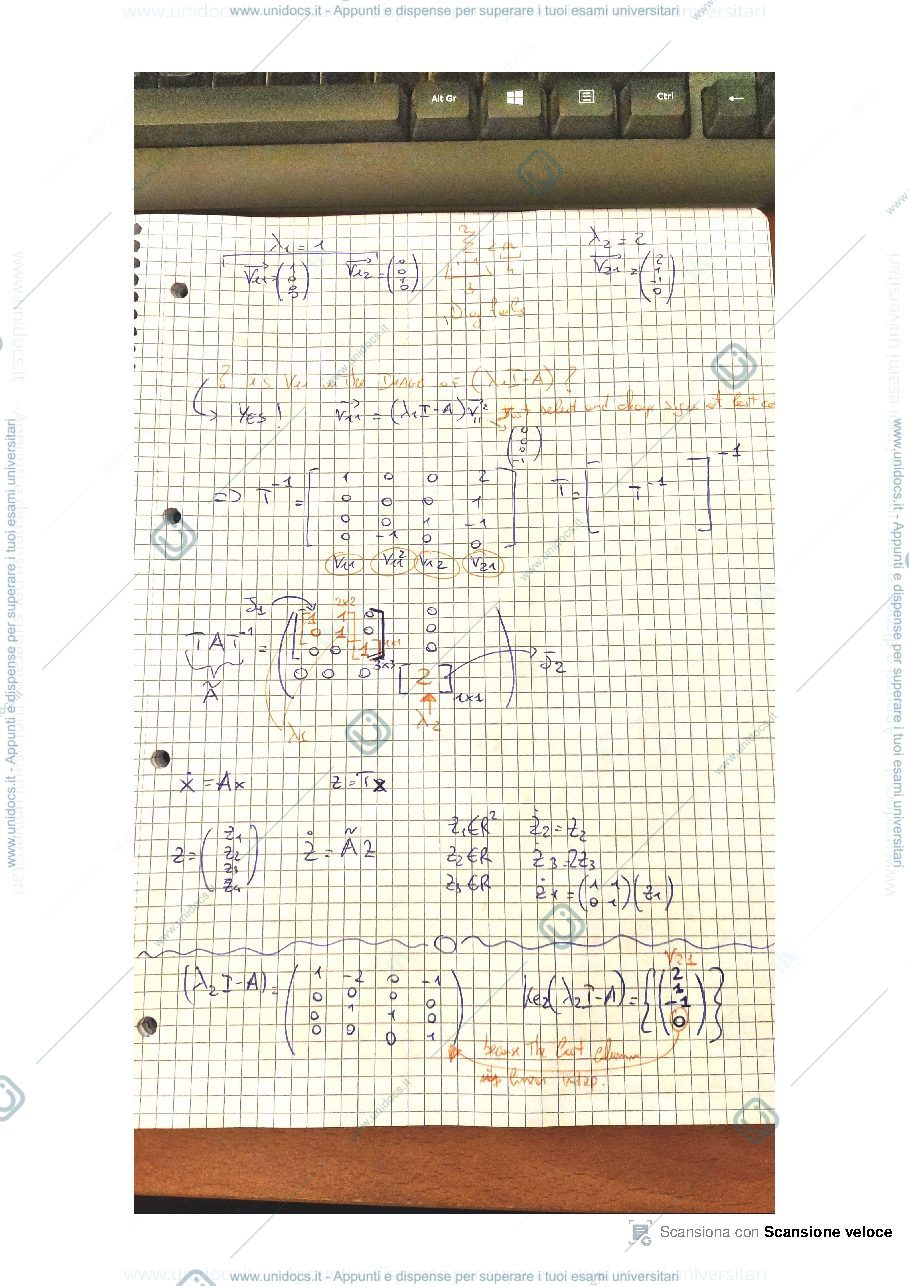 www.unidocs.it - Appunti e dispense per superare i tuoi esami universitari
Alt Gr
Ctrl
λ1 = 1
λ2 = 2
V11 = (1 0 0 0)
V12 = (0 0 1 0)
V21 = (2 1 -1 0)
3
? is V11 in the IMAGE of (λ1I-A) ?
YES! V11 = (λ1I-A) V11² Just select and change sign at last co
(0 0 0 -1)
=> T⁻¹ = [
1 0 0 2
0 0 0 1
0 0 1 -1
0 -1 0 0
] T = [ T⁻¹ ]⁻¹
V11 V11² V12 V21
J1 2x2
TAT⁻¹ = (
1 1 0 0
0 1 0 0
0 0 [1] 1x1 0
0 0 0 3x3 [2] 1x1
) J2
Ã
λ1
λ2
ẋ = Ax z = Tx
z = (z1 z2 z3 z4) ż = Ã z
z1 ∈ R² ż2 = z2
z2 ∈ R ż3 = 2z3
z3 ∈ R ż1 = (1 1 0 1)(z1)
(λ2I-A) = (
1 -2 0 -1
0 0 0 0
0 1 1 0
0 0 0 1
) Ker(λ2I-A) = {(2 1 -1 0)}
V21
because the last column
is linear indep.
Scansiona con Scansione veloce
www.unidocs.it - Appunti e dispense per superare i tuoi esami universitari